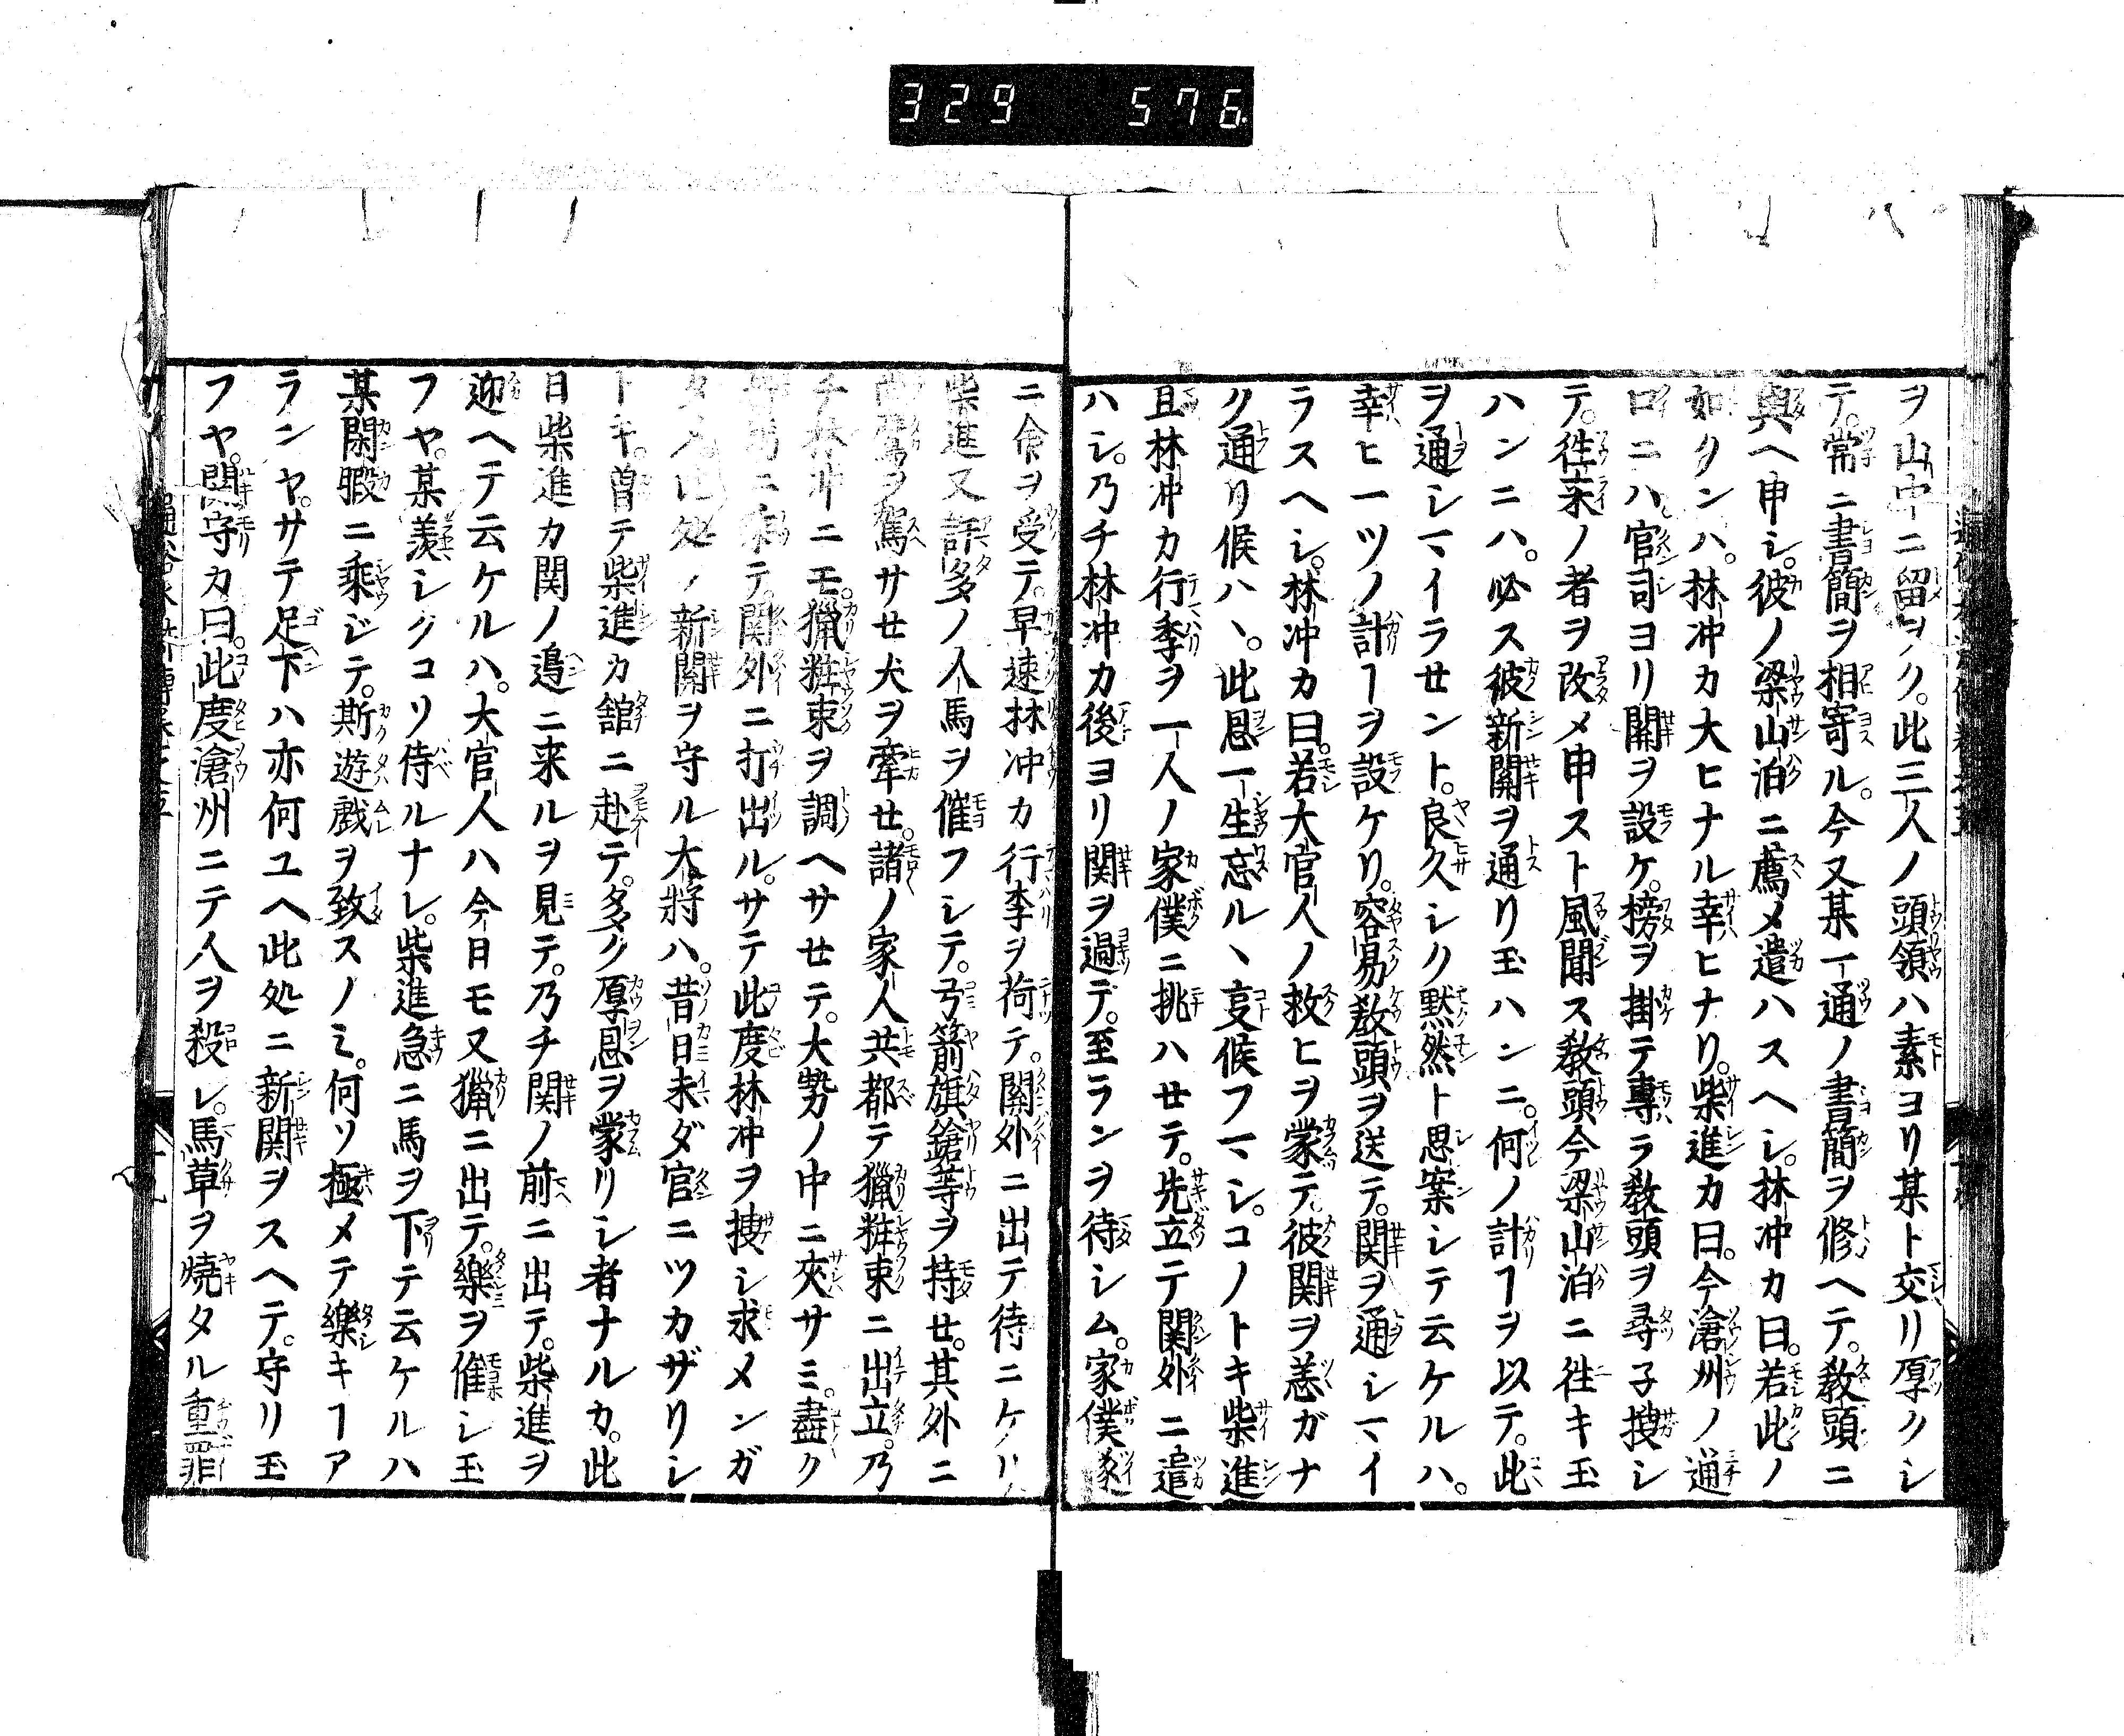 329 576
ヲ山中ニ留ヲク。此三人ノ頭領ハ素ヨリ某ト交リ厚クシ
テ。常ニ書簡ヲ相寄ル。今又某一通ノ書簡ヲ修ヘテ。教頭ニ
與ヘ申シ。彼ノ梁山泊ニ薦メ遣ハスヘシ。林冲カ曰。若此ノ
如クンハ。林冲カ大ヒナル幸ヒナリ。柴進カ曰。今滄州ノ通
口ニハ官司ヨリ關ヲ設ケ。榜ヲ掛テ專ラ教頭ヲ尋子搜シ
テ。徃来ノ者ヲ改メ申スト風聞ス教頭今梁山泊ニ徃キ玉
ハンニハ。必ス彼新關ヲ通リ玉ハンニ。何ノ計ヿヲ以テ。此
ヲ通シマイラセント。良久シク黙然ト思案シテ云ケルハ。
幸ヒ一ツノ計ヿヲ設ケリ。容昜教頭ヲ送テ。関ヲ通シマイ
ラスヘシ。林冲カ曰。若大官人ノ救ヒヲ蒙テ。彼関ヲ恙ガナ
ク通リ候ハヽ。此恩一生忘ルヽ叓候フマシ。コノトキ柴進
且林冲カ行李ヲ一人ノ家僕ニ挑ハせテ。先立テ関外ニ遣
ハシ。乃チ林冲カ後ヨリ関ヲ過テ。至ランヲ待シム。家僕遂
ニ命ヲ受テ。早速林冲カ行李ヲ荷テ。關外ニ出テ待ニケリ
柴進又許多ノ人馬ヲ催フシテ。弓箭旗鎗等ヲ持せ。其外ニ
鷹ヲ駕サせ犬ヲ牽せ。諸ノ家人共都テ獵粧束ニ出立。乃
チ林冲ニモ。獵粧束ヲ調ヘサせテ。大勢ノ中ニ夾サミ。盡ク
馬ニ乗テ。関外ニ打出ル。サテ此度林冲ヲ搜シ求メンガ
タメ。此処ノ新關ヲ守ル大將ハ。昔日未ダ官ニツカザリシ
トキ。曽テ柴進カ舘ニ赴テ。多ク厚恩ヲ蒙リシ者ナルカ。此
日柴進カ関ノ邉ニ来ルヲ見テ。乃チ関ノ前ニ出テ。柴進ヲ
迎ヘテ云ケルハ。大官人ハ今日モ又獵ニ出テ。樂ヲ催シ玉
フヤ。某羨シクコソ侍ルナレ。柴進急ニ馬ヲ下テ云ケルハ
某閑暇ニ乘ジテ。斯遊戯ヲ致スノミ。何ソ極メテ樂キヿア
ランヤ。サテ足下ハ亦何ユヘ此処ニ新関ヲスヘテ。守リ玉
フヤ。関守カ曰。此度滄州ニテ人ヲ殺シ。馬草ヲ燒タル重罪